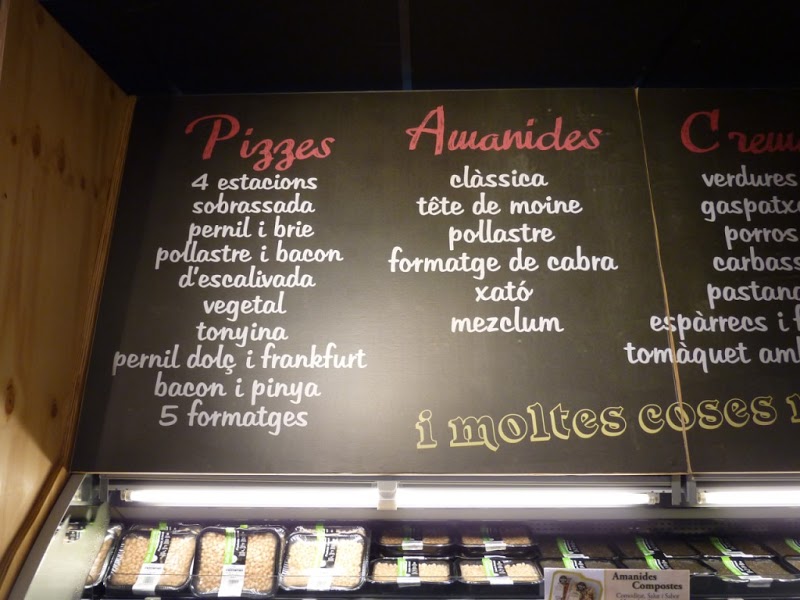 Pizzes
4 estacions
sobrassada
pernil i brie
pollastre i bacon
d'escalivada
vegetal
tonyina
pernil dolç i frankfurt
bacon i pinya
5 formatges
Amanides
clàssica
tête de moine
pollastre
formatge de cabra
xató
mezclum
Crem
verdures
gaspatx
porros
carbass
pastana
espàrrecs i f
tomàquet amb
i moltes coses
Amanides
Compostes